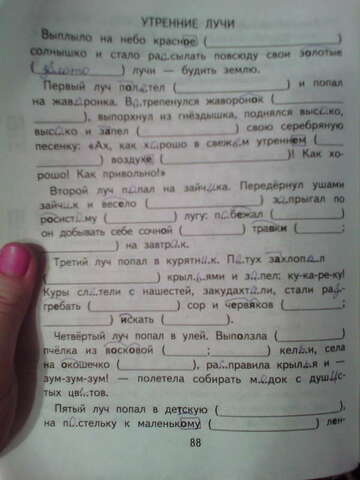 УТРЕННИЕ ЛУЧИ
Выплыло на небо красное (            )
солнышко и стало рассылать повсюду свои золотые
( золото ) лучи — будить землю.
Первый луч полетел (            ) и попал
на жаворонка. Встрепенулся жаворонок (
            ), выпорхнул из гнёздышка, поднялся высоко,
высоко и запел (            ) свою серебряную
песенку: «Ах, как хорошо в свежем утреннем (
            ) воздухе (            )! Как хо-
рошо! Как привольно!»
Второй луч попал на зайчика. Передёрнул ушами
зайчик и весело (            ) запрыгал по
росистому (            ) лугу: побежал (            )
он добывать себе сочной (            ) травки (            ;
            ) на завтрак.
Третий луч попал в курятник. Петух захлопал
(            ) крыльями и запел: ку-ка-ре-ку!
Куры слетели с нашестей, закудахтали, стали раз-
гребать (            ) сор и червяков (            ;
            ) искать (            ).
Четвёртый луч попал в улей. Выползла (            )
пчёлка из восковой (            ;            ) кельи, села
на окошечко (            ), расправила крылья и —
зум-зум-зум! — полетела собирать медок с душис-
тых цветов.
Пятый луч попал в детскую (            ),
на постельку к маленькому (            ) лен-
88